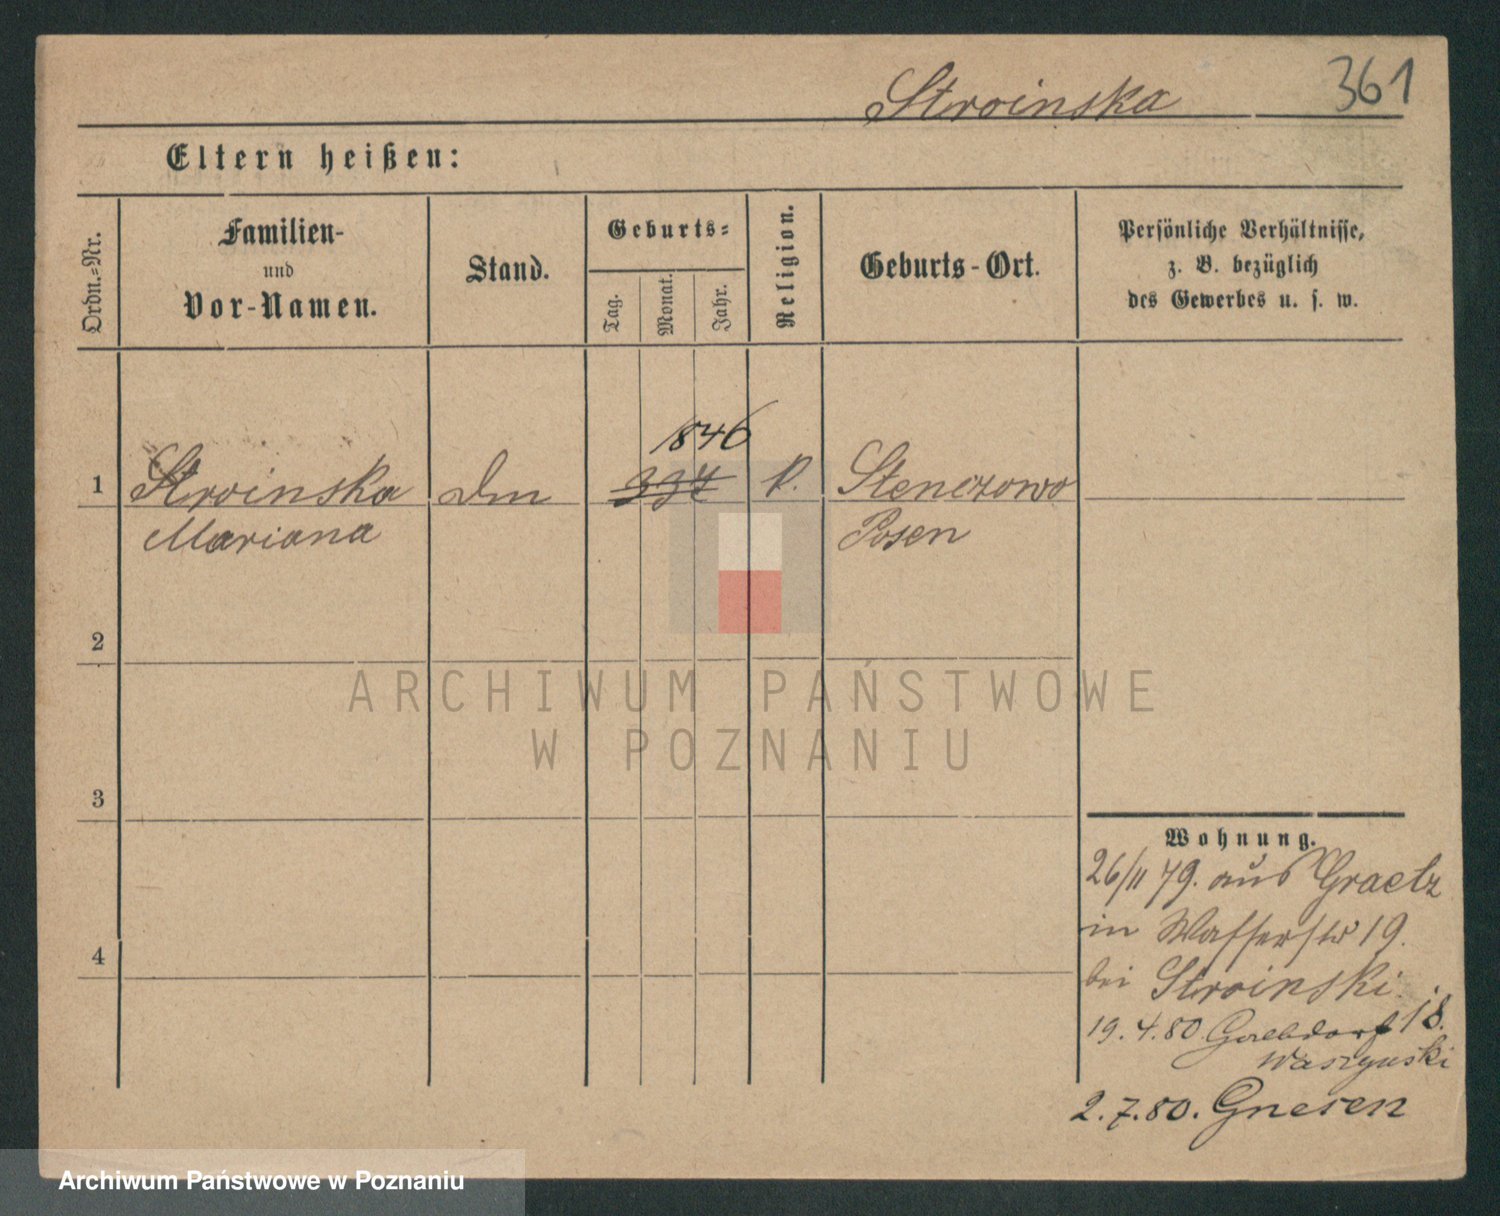 Stroinska 361
Eltern heißen:
Ordn.=Nr.
Familien-
und
Vor-Namen.
Stand.
Geburts=
Tag.
Monat.
Jahr.
Religion.
Geburts-Ort.
Persönliche Verhältnisse,
z. B. bezüglich
des Gewerbes u. s. w.
1846
1 Stroinska 33 k. Stenczowo
Mariana Posen
2
ARCHIWUM PAŃSTWOWE
W POZNANIU
3
Wohnung.
26/11 79. aus Graetz
4
in Wasserstr 19.
bei Stroinski.
19. 4. 80 18.
Waszynski
2. 7. 80. Gnesen
Archiwum Państwowe w Poznaniu